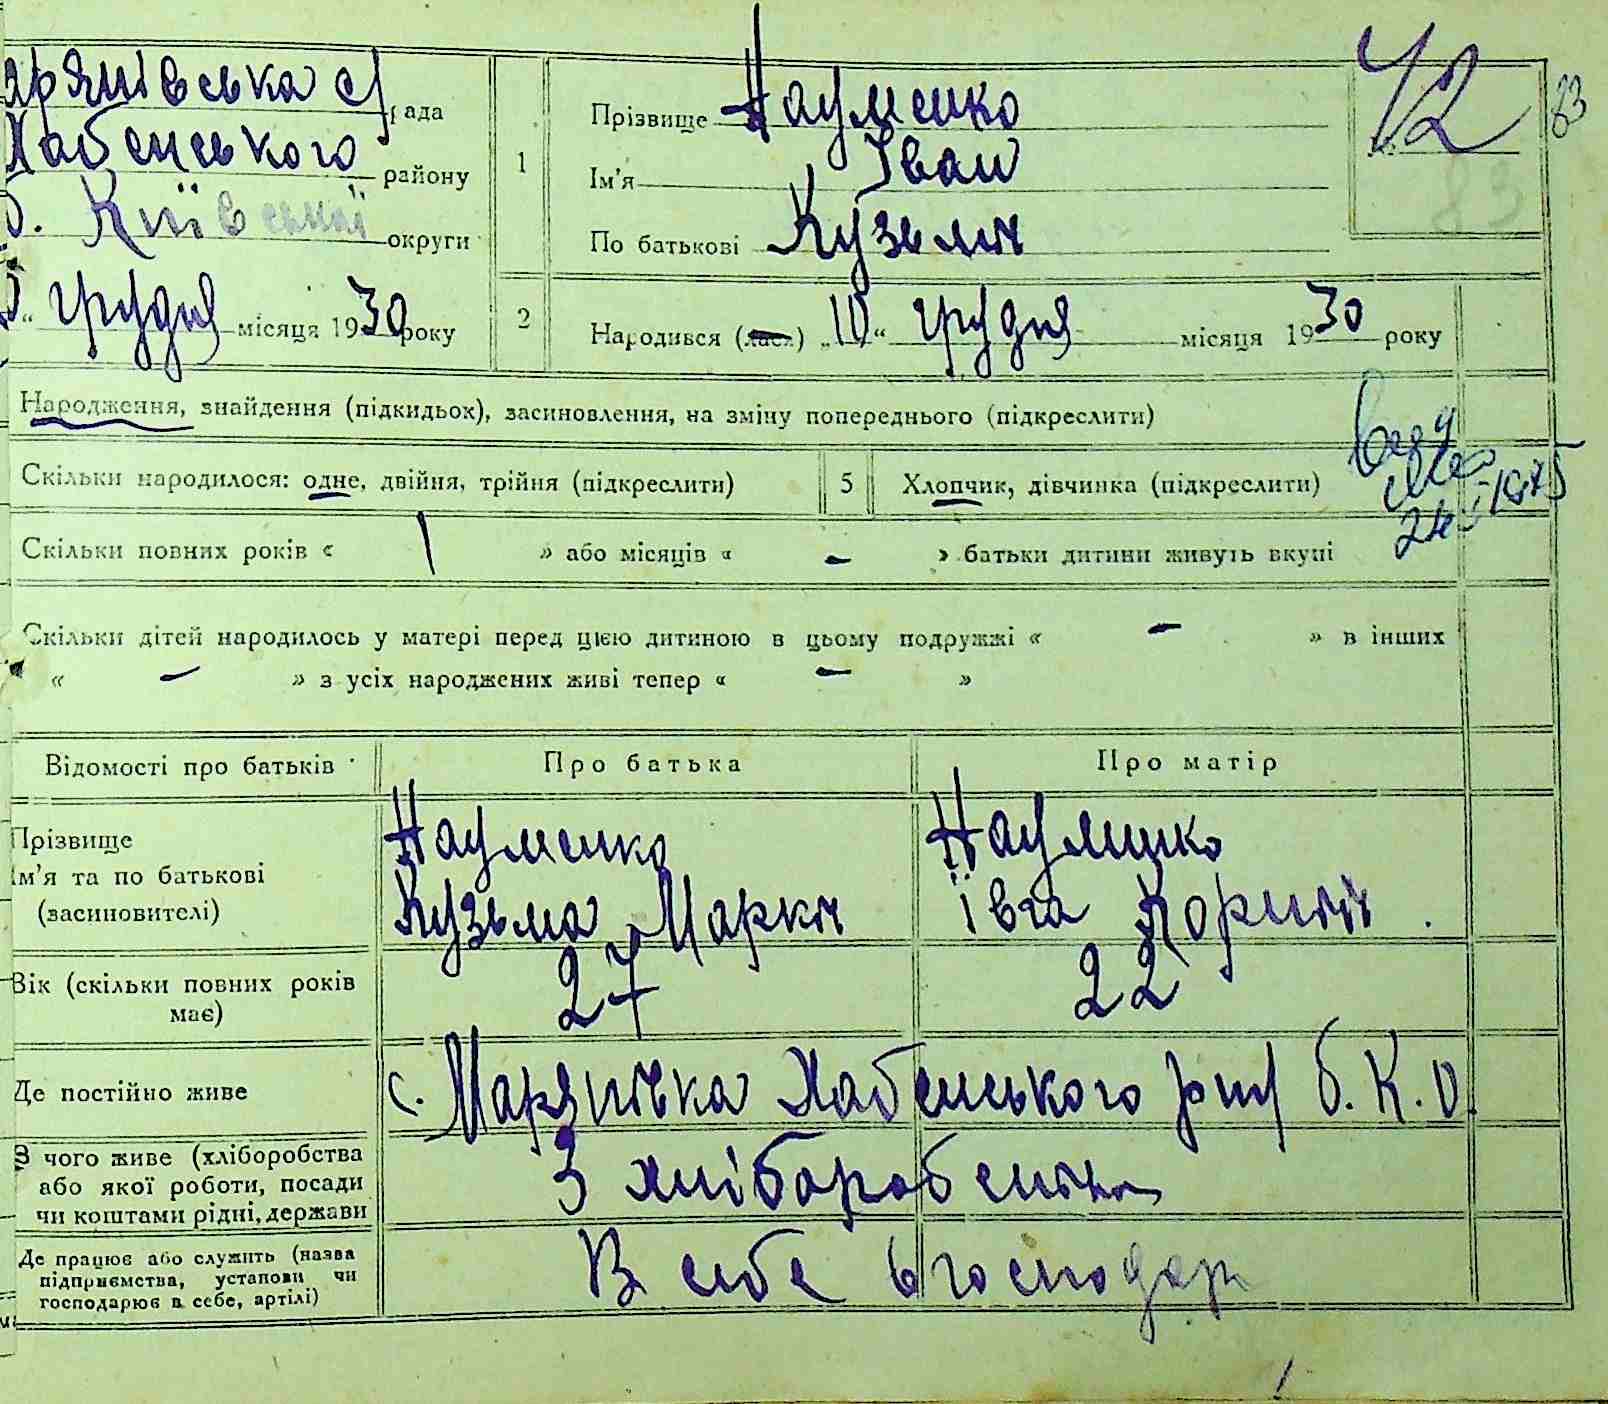 арянівська с/рада
Хабенського району
б. Київської округи
“ грудня місяця 1930 року
1
Прізвище Науменко
Ім'я Іван
По батькові Кузьмич
72
83
83
2
Народився (лась) „10“ грудня місяця 1930 року
Народження, знайдення (підкидьок), засиновлення, на зміну попереднього (підкреслити)
Скільки народилося: одне, двійня, трійня (підкреслити)
5
Хлопчик, дівчинка (підкреслити)
Скільки повних років « 1 » або місяців « - » батьки дитини живуть вкупі
Скільки дітей народилось у матері перед цією дитиною в цьому подружжі « - » в інших
« - » з усіх народжених живі тепер « - »
Відомості про батьків
Про батька
Про матір
Прізвище
ім'я та по батькові
(засиновителі)
Науменко
Кузьма Маркіч
Науменко
Ївга Корніїв
Вік (скільки повних років
має)
27
22
Де постійно живе
с. Марянівка Хабенського р-ну б. К. о.
З чого живе (хліборобства
або якої роботи, посади
чи коштами рідні, держави
З хліборобства
Де працює або служить (назва
підприємства, установи чи
господарює в себе, артілі)
В себе в господар